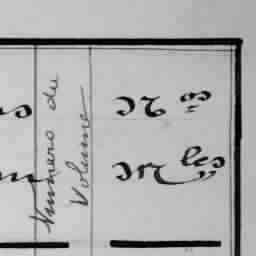 Numéro du
Volume
Nos
Mles